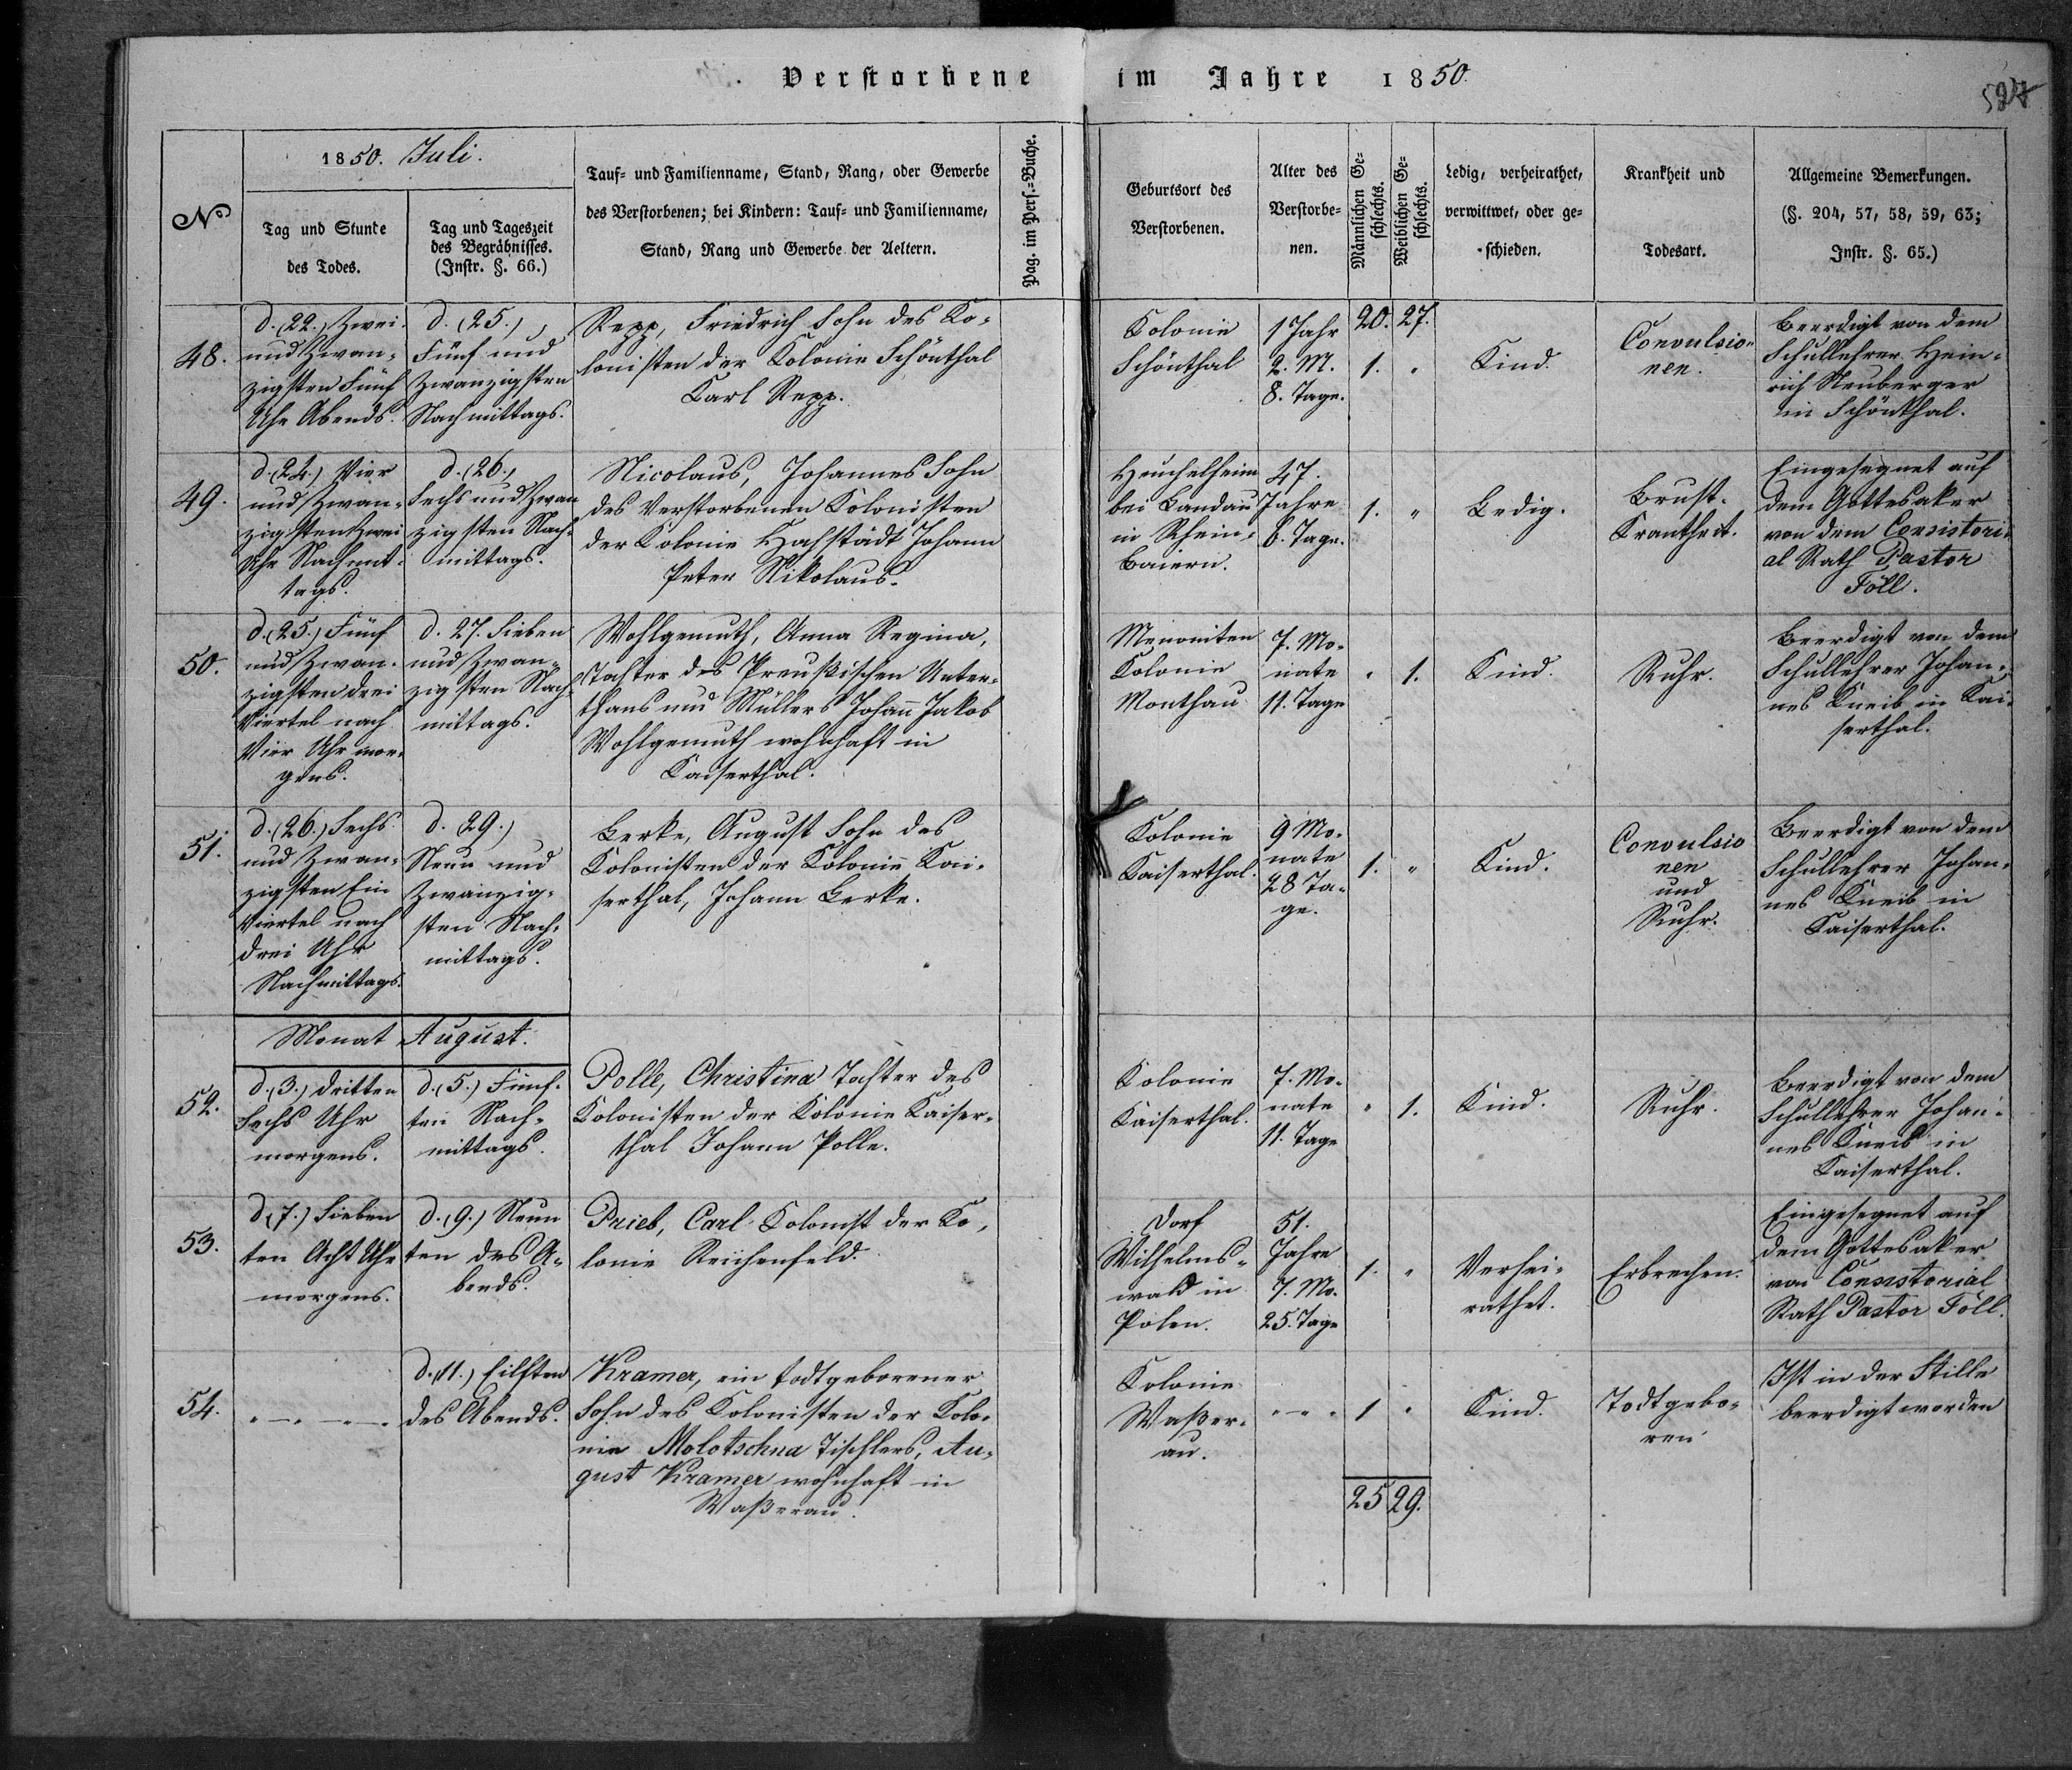 Verstorbene im Jahre 1850.
527
№
1850. Juli.
Tag und Stunde
des Todes.
Tag und Tageszeit
des Begräbnisses.
(Instr. §. 66.)
Tauf- und Familienname, Stand, Rang, oder Gewerbe
des Verstorbenen; bei Kindern: Tauf- und Familienname,
Stand, Rang und Gewerbe der Aeltern.
Pag. im Pers.-Buche.
Geburtsort des
Verstorbenen.
Alter des
Verstorbe-
nen.
Männlichen Ge-
schlechts.
Weiblichen Ge-
schlechts.
Ledig, verheirathet,
verwittwet, oder ge-
schieden.
Krankheit und
Todesart.
Allgemeine Bemerkungen.
(§. 204, 57, 58, 59, 63;
Instr. §. 65.)
48.
d. (22.) Zwei-
und zwan-
zigsten Fünf
Uhr Abends.
d. (25.)
Fünf und
zwanzigsten
Nachmittags.
Repp, Friedrich Sohn des Ko-
lonisten der Kolonie Schönthal
Carl Repp.
Kolonie
Schönthal
1 Jahr
2. M.
8. Tage.
20. 27.
1. "
Kind.
Convulsio-
nen.
Beerdigt von dem
Schullehrer Hein-
rich Neuberger
in Schönthal.
49.
d. (24.) Vier
und zwan-
zigsten Zwei
Uhr Nachmit-
tags.
d. (26.)
Sechs und zwan
zigsten Nach-
mittags.
Nicolaus, Johannes Sohn
des Verstorbenen Kolonisten
der Kolonie Hochstädt Johann
Peter Nikolaus.
Heuchelheim
bei Landau
in Rhein-
Baiern.
47.
Jahre
6. Tage.
1. "
Ledig.
Brust-
Krankheit.
Eingesegnet auf
dem Gottesaker
von dem Consistori-
al Rath Pastor
Föll.
50.
d. (25.) Fünf
und zwan-
zigsten drei
Viertel nach
Vier Uhr mor-
gens.
d. 27. Sieben
und zwan-
zigsten Nach-
mittags.
Wohlgemuth, Anna Regina,
Tochter des Preußischen Unter-
thans und Müllers Johann Jakob
Wohlgemuth wohnhaft in
Kaiserthal.
Menoniten
Kolonie
Monthau
7. Mo-
nate
11. Tage
" 1.
Kind.
Ruhr.
Beerdigt von dem
Schullehrer Johan-
nes Kneib in Kai-
serthal.
51.
d. (26.) Sechs
und zwan-
zigsten Ein
Viertel nach
drei Uhr
Nachmittags.
d. (29.)
Neun und
zwanzig-
sten Nach-
mittags.
Lerke, August Sohn des
Kolonisten der Kolonie Kai-
serthal, Johann Lerke.
Kolonie
Kaiserthal.
9 Mo-
nate
28 Ta-
ge.
1. "
Kind.
Convulsio
nen
und
Ruhr.
Beerdigt von dem
Schullehrer Johan-
nes Kneib in
Kaiserthal.
Monat August.
52.
d. (3.) dritten
Sechs Uhr
morgens.
d. (5.) Fünf-
ten Nach-
mittags.
Polle, Christina Tochter des
Kolonisten der Kolonie Kaiser-
thal Johann Polle.
Kolonie
Kaiserthal.
7. Mo-
nate
11. Tage
" 1.
Kind.
Ruhr.
Beerdigt von dem
Schullehrer Johan-
nes Kneib in
Kaiserthal.
53.
d. (7.) Sieben
ten Acht Uhr
morgens.
d. (9.) Neun
ten des A-
bends.
Prieb, Carl Kolonist der Ko-
lonie Reichenfeld.
Dorf
Wilhelms-
wald in
Polen.
51.
Jahre
7. Mo.
25. Tage
1. "
Verhei-
rathet.
Erbrechen.
Eingesegnet auf
dem Gottesaker
von Consistorial
Rath Pastor Föll.
54.
" — " — " —
d. (11.) Eilften
des Abends.
Kramer, ein todtgeborener
Sohn des Kolonisten der Kolo-
nie Molotschna Tischlers, Au-
gust Kramer wohnhaft in
Waßerau.
Kolonie
Waßer-
au.
" — "
1 "
Kind.
Todtgebo-
ren
Ist in der Stille
beerdigt worden
25 29.